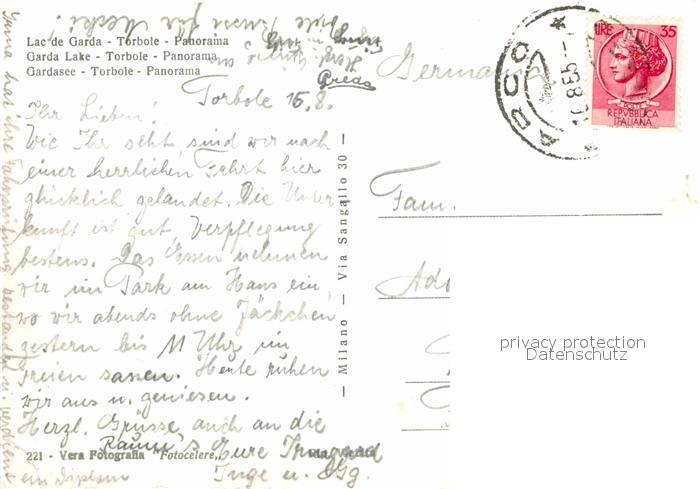 Lac de Garda - Torbole - Panorama
Garda Lake - Torbole - Panorama
Gardasee - Torbole - Panorama
Torbole 15.8.
Ihr Lieben!
Wie Ihr seht, sind wir nach
einer herrlichen Fahrt hier
glücklich gelandet. Die Unter
kunft ist gut, Verpflegung
bestens. Das Essen nehmen
wir im Park am Haus ein,
wo wir abends ohne Jäckchen
gestern bis 11 Uhr im
Freien sassen. Heute ruhen
wir aus u. geniesen.
Herzl. Grüsse auch an die
Eure Irmgard
Inge u.
221 - Vera Fotografia "Fotocelere"
Irma hat ihre Fahrprüfung bestanden u. verdient
ein Diplom
Viele Grüsse für
Milano - Via Sangallo 30 -
Germania
ARCO
8.55
LIRE 35
POSTE
REPVBBLICA
ITALIANA
Fam.
privacy protection
Datenschutz